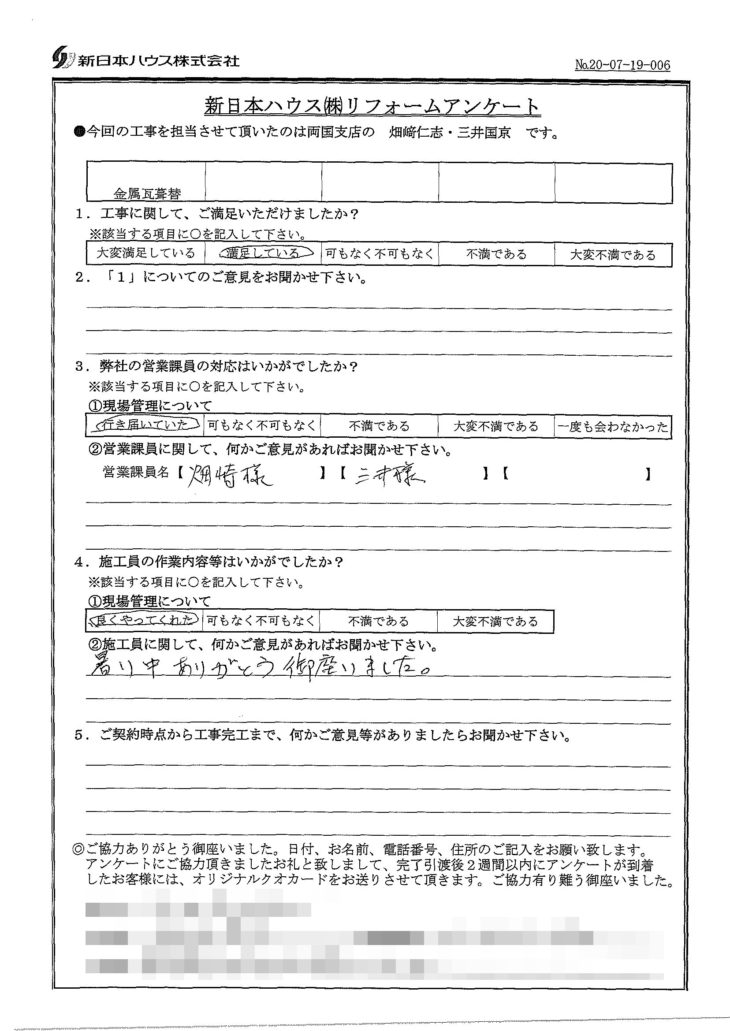 新日本ハウス株式会社
№20-07-19-006
新日本ハウス㈱リフォームアンケート
●今回の工事を担当させて頂いたのは両国支店の 畑﨑仁志・三井国京 です。
金属瓦葺替
1．工事に関して、ご満足いただけましたか？
※該当する項目に○を記入して下さい。
大変満足している 満足している 可もなく不可もなく 不満である 大変不満である
2．「1」についてのご意見をお聞かせ下さい。
3．弊社の営業課員の対応はいかがでしたか？
※該当する項目に○を記入して下さい。
①現場管理について
行き届いていた 可もなく不可もなく 不満である 大変不満である 一度も会わなかった
②営業課員に関して、何かご意見があればお聞かせ下さい。
営業課員名【 畑崎様 】【 三井様 】【 】
4．施工員の作業内容等はいかがでしたか？
※該当する項目に○を記入して下さい。
①現場管理について
良くやってくれた 可もなく不可もなく 不満である 大変不満である
②施工員に関して、何かご意見があればお聞かせ下さい。
暑い中ありがとう御座いました。
5．ご契約時点から工事完工まで、何かご意見等がありましたらお聞かせ下さい。
◎ご協力ありがとう御座いました。日付、お名前、電話番号、住所のご記入をお願い致します。
アンケートにご協力頂きましたお礼と致しまして、完了引渡後２週間以内にアンケートが到着
したお客様には、オリジナルクオカードをお送りさせて頂きます。ご協力有り難う御座いました。